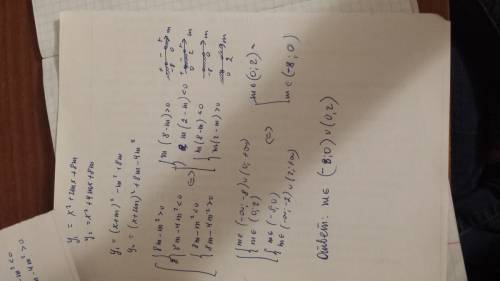 y₁ = x² + 2mx + 8m
y₂ = x² + 4mx + 8m
y₁ = (x+m)² - m² + 8m
y₂ = (x+2m)² + 8m - 4m²
8m - m² > 0
8m - 4m² < 0
8m - m² < 0
8m - 4m² > 0
<=>
m (8-m) > 0
m (2-m) < 0
m (8-m) < 0
m (2-m) > 0
m ∈ (-∞; -8) ∪ (0; +∞)
m ∈ (0; 2)
m ∈ (-8; 0)
m ∈ (-∞; -2) ∪ (2; +∞)
<=>
m ∈ (0; 2)
m ∈ (-8; 0)
Ответ: m ∈ (-8; 0) ∪ (0; 2)